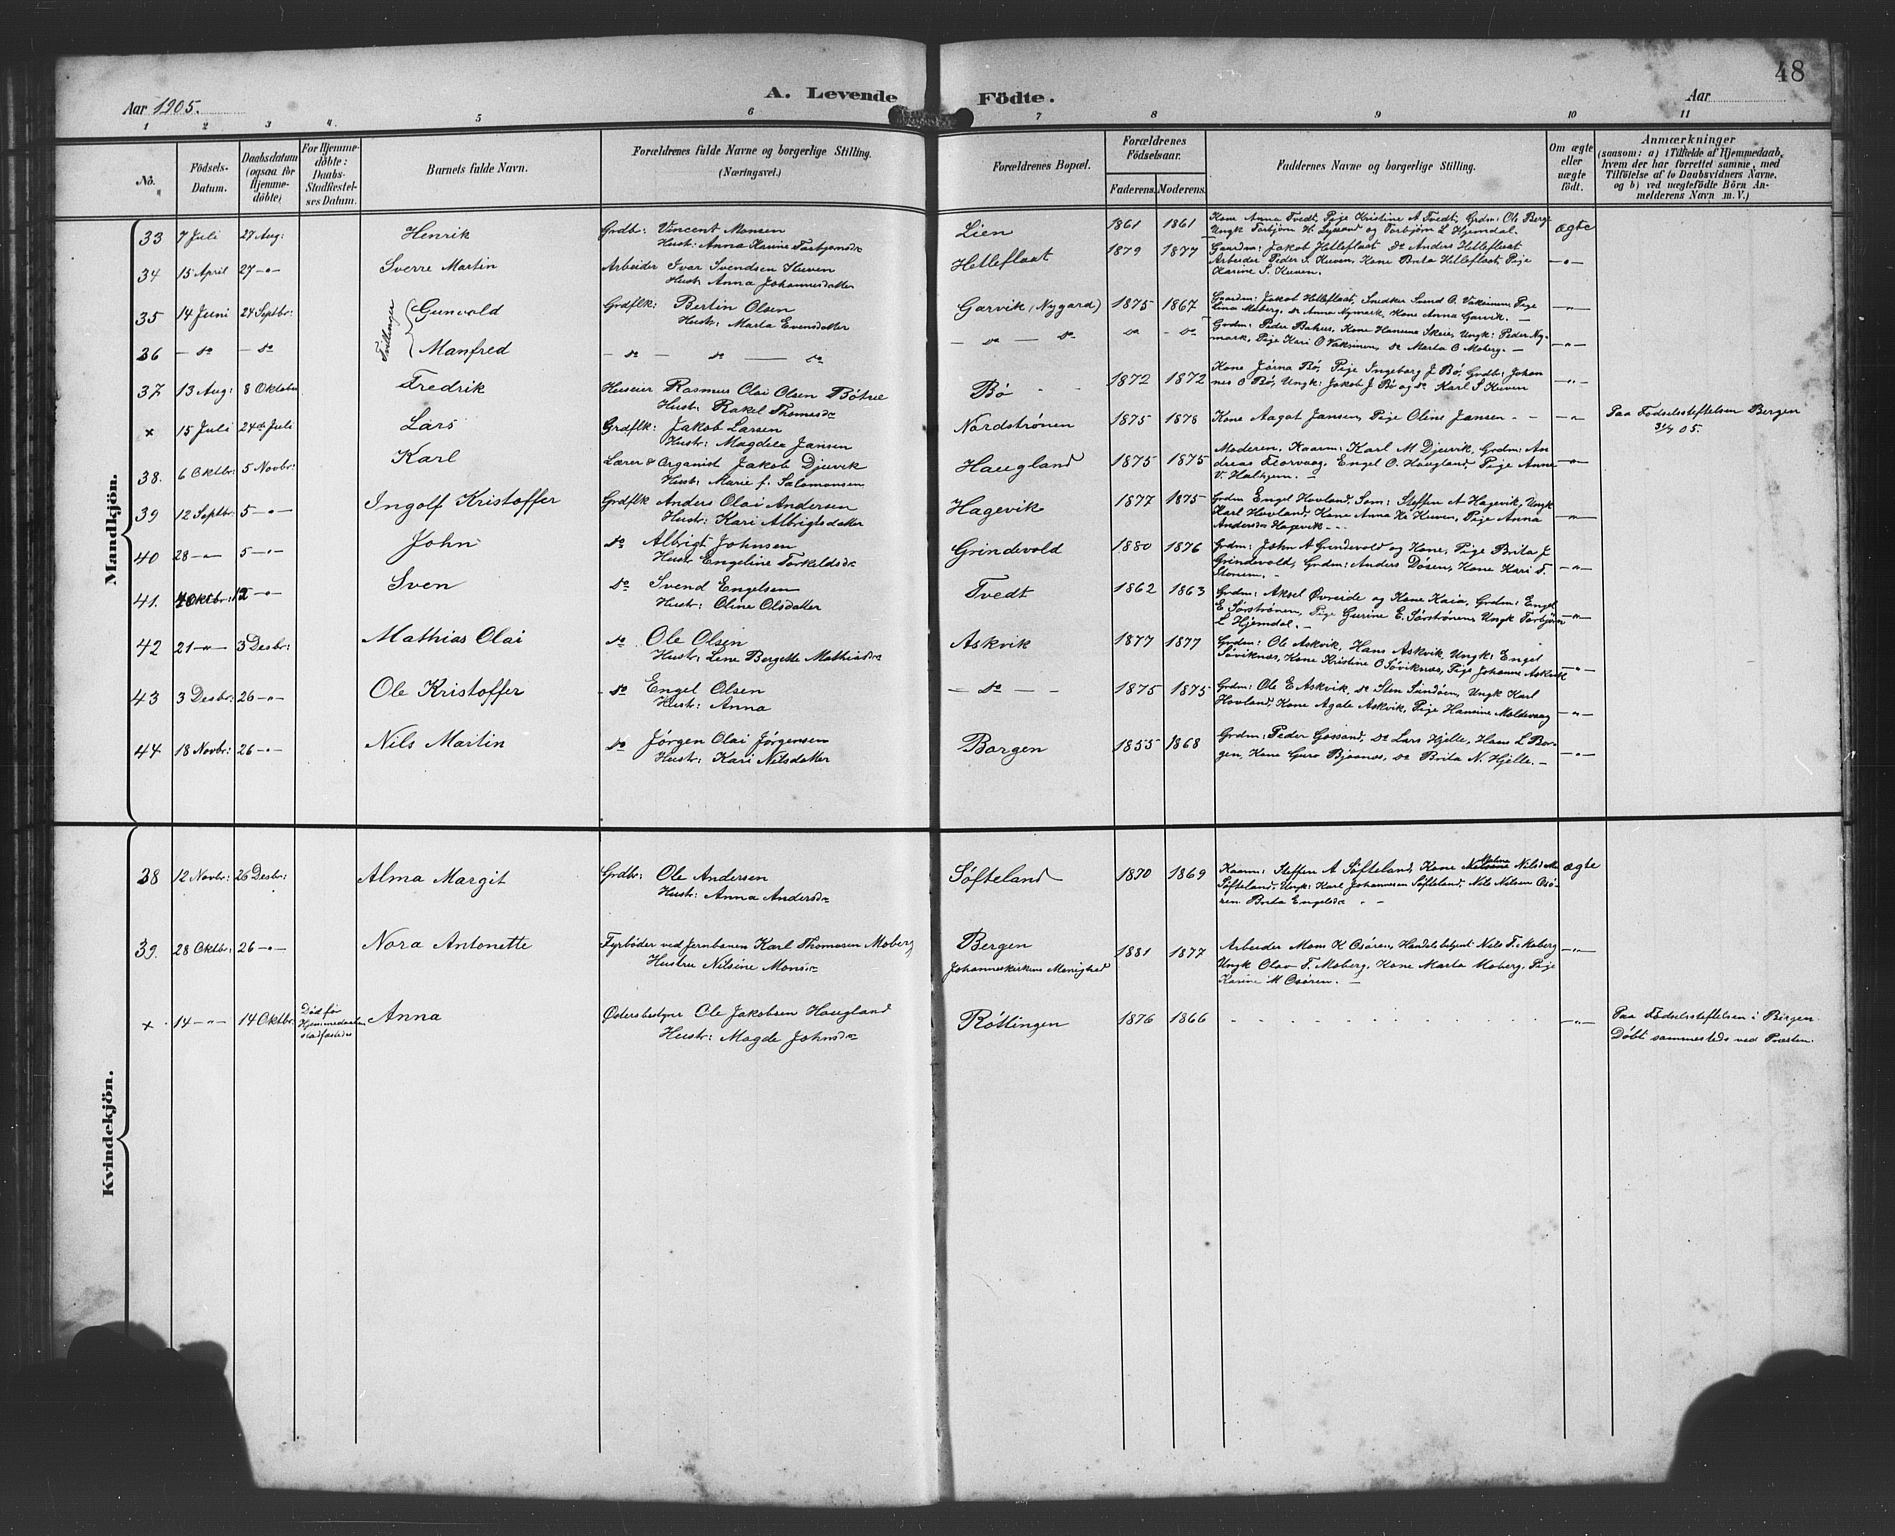 48
Aar 1905.
A. Levende Födte.
Aar
1 2 3 4. 5 6 7 8 9 10 11
No.
Födsels-Datum.
Daabsdatum (ogsaa for Hjemme-döbte)
For Hjemme-döbte: Daabs-Stadfæstel-ses Datum.
Barnets fulde Navn.
Forældrenes fulde Navne og borgerlige Stilling. (Næringsvei.)
Forældrenes Bopæl.
Forældrenes Födselsaar.
Faderens. Moderens.
Faddernes Navne og borgerlige Stilling.
Om ægte eller uægte födt.
Anmærkninger
(saasom: a) i Tilfælde af Hjemmedaab, hvem der har forrettet samme, med Tilföielse af to Daabsvidners Navne, og b) ved uægtefödte Börn An-melderens Navn m. V.)
Mandkjön.
33 7 Juli 27 Aug: Henrik Grdbr: Vincent Monsen Hustr: Anna Karine Torbjørnsdr Lien 1861 1861 Kone Anna Tvedt, Pige Kristine A Tvedt, Grdm: Ole Berge Ungk Torbjørn H. Lyssand og Torbjørn L Hjemdal. ægte
34 15 April 27 -"- Sverre Martin Arbeider Ivar Svendsen Kuven Hustr Anna Johannesdatter Hetleflaat 1879 1877 Gaardm: Jakob Hetleflaat Do Anders Hetleflaat Arbeider Peder S. Kuven, Kone Brita Hetleflaat, Pige Karine S. Kuven. -"-
35 14 Juni 24 Septbr: Tvillinger Gunvald Grdflk: Bertin Olsen Hustr: Marta Evensdatter Garvik (Nygard) 1875 1867 Gaardm: Jakob Hetleflaat, Snedker Svend O. Vaksinen, Pige Lina Moberg, Do Anna Nymark, Kone Anna Garvik. -"-
36 - Do - Do Manfred - Do - Do - Do - Do - Do Do - Do Grdm: Peder Bahus, Kone Hansina Skeie, Ungk: Peder Nymark, Pige Kari O Vaksinen, Do Marta O Moberg. -"-
37 13 Aug: 8 Oktober Fredrik Huseier Rasmus Olai Olsen Bøtræ Hustr: Rakel Thomasdr Bø 1872 1872 Kone Jørna Bø, Pige Ingeborg J Bø, Grdb: Johannes O Bø, Ungk: Jakob J Bø og Do Karl S Kuven -"-
x 15 Juli 24de Juli Lars Grdflk: Jakob Larsen Hustr: Magdela Jansen Nordstrønen 1875 1878 Kone Aagot Jansen, Pige Oline Jansen -"- Paa Fødselsstiftelsen Bergen 31/7 05.
38. 6 Oktbr: 5 Novbr: Karl Lærer & Organist Jakob Djuvik Hustr: Marie f. Salamonsen Haugland 1875 1875 Moderen, Kaarm: Karl M Djuvik, Grdm: Andreas Florvaag, Engel O. Haugland, Pige Anne V. Halhjem. -"-
39 12 Septbr: 5 -"- Ingolf Kristoffer Grdflk Anders Olai Andersen Hustr: Kari Albrigtsdatter Hagevik 1877 1875 Grdm Engel Hovland, Søm: Steffen A Hagevik, Ungk Karl Hovland, Kone Anna Kr Kuven, Pige Anna Andersdr Hagevik -"-
40 28 -"- 5 -"- John Do Albrigt Johnsen Hustr Engeline Torkeldsdr Grindevold 1880 1876 Grdm: John A Grindevold og Kone, Pige Brita J. Grindevold, Grdm: Anders Døsen, Kone Kari T. Stonem. -"-
41. Oktbr: 12 -"- Sven Do Svend Engelsen Hustr: Oline Olsdatter Tvedt 1862 1863 Grdm: Aksel Øvreide og Kone Kaia, Grdm: Engel E. Sørstrønen, Pige Gurine E. Sørstrønen, Ungk Torbjørn L Hjemdal. -"-
42 21 -"- 3 Desbr: Mathias Olai Do Ole Olsen Hustr: Lene Bergette Mathiasdr Askvik 1877 1877 Grdm: Ole Askvik, Hans Askvik, Ungk: Engel Søviknæs, Kone Kristine O Søviknæs, Pige Johanne Askvik -"-
43 3 Desbr: 26 -"- Ole Kristoffer Do Engel Olsen Hustr: Anna - Do - - 1875 1875 Grdm: Ole E Askvik, Do Sten Sundøen, Ungk Karl Hovland, Kone Agate Askvik, Pige Hansine Moldevaag -"-
44 18 Novbr: 26 -"- Nils Martin Do Jørgen Olai Jørgensen Hustr: Kari Nilsdatter Borgen 1855 1868 Grdm: Peder Gåssand, Do Lars Hjelle, Hans L Borgen, Kone Guro Bjøanæs, Do Brita N. Hjelle. -"-
Kvindekjön.
38 12 Novbr: 26 Desbr: Alma Margit Grdbr: Ole Andersen Hustr: Anna Andersdr Søfteland 1870 1869 Kaarm: Steffen A Søfteland, Kone Malene Nilsdatter Søfteland, Ungk: Karl Johannesen Søfteland, Nils Nilsen Osøren. Brita Engelsdr ægte
39. 28 Oktbr: 26 -"- Nora Antonette Fyrbøder ved Jernbanen Karl Thomasen Moberg Hustru Nilsine Monsdr Bergen Johanneskirkens Menighed 1881 1877 Arbeider Mons K Osøren, Handelsbetjent Nils T. Moberg Ungk Olav T. Moberg, Kone Marta Moberg, Pige Karine M Osøren. -"-
x 14 -"- 14 Oktbr. Død før Hjemmedaaben stadfæstedes Anna Østersbestyrer Ole Jakobsen Haugland Hustr: Magde Johnsdr Røttingen 1876 1866 -"- Paa Fødselsstiftelsen i Bergen. Døbt sammesteds ved Præsten.